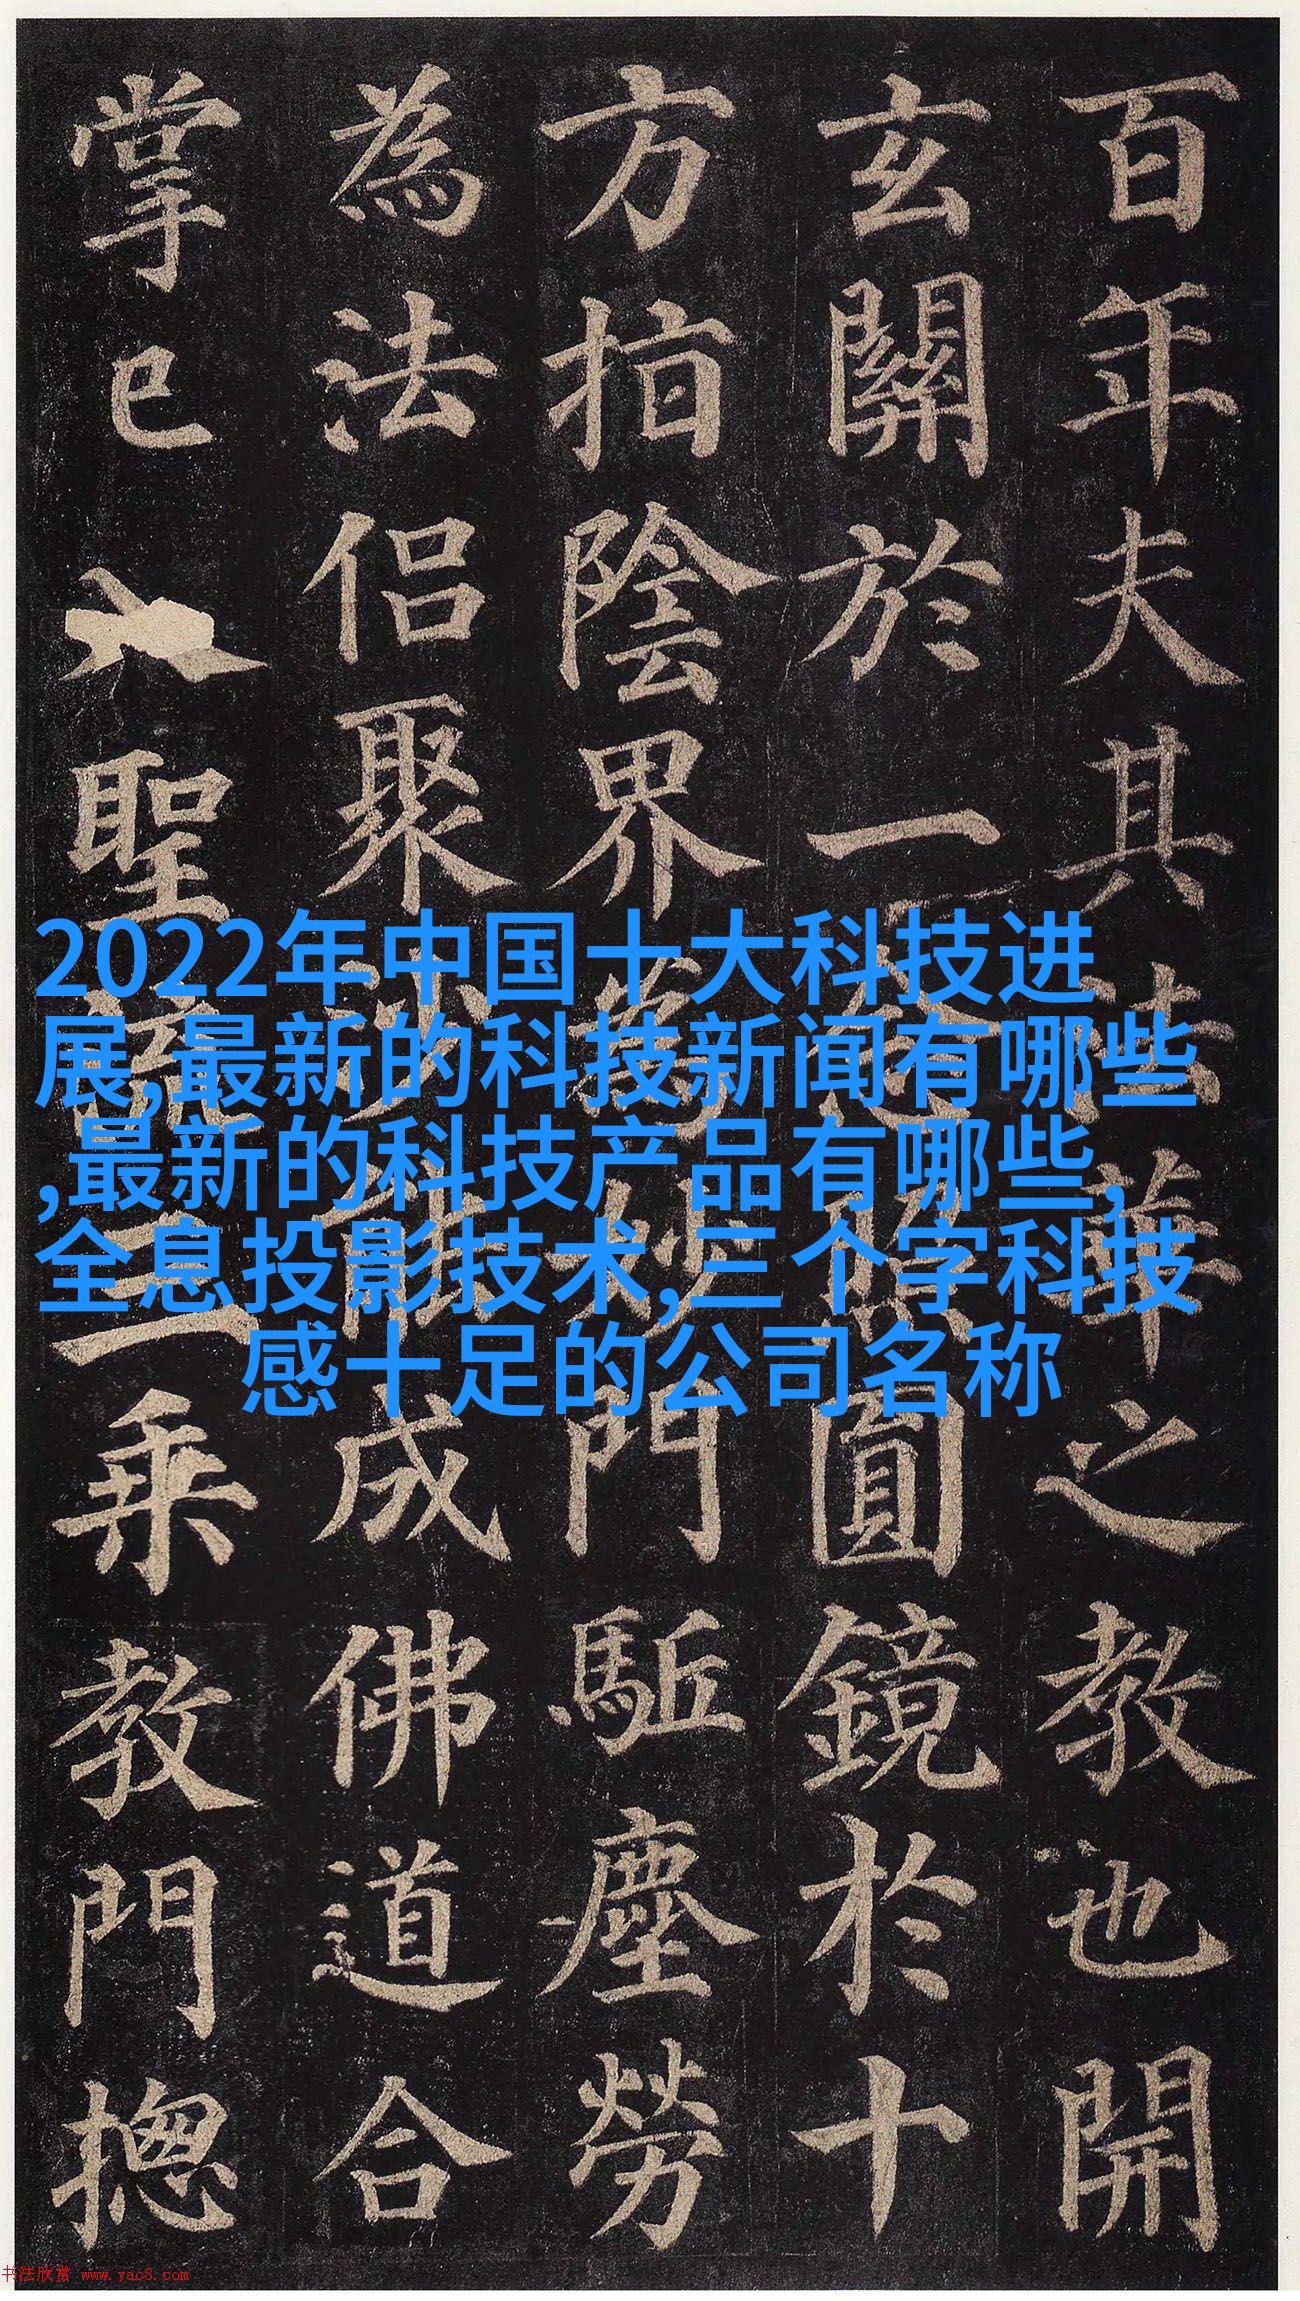 百年夫其法華之教也開
玄關於一念照圓鏡於十
方指陰界為妙門駈塵勞
為法侶聚沙能成佛道合
掌已入聖流三乘教門揔
2022年中国十大科技进
展,最新的科技新闻有哪些
,最新的科技产品有哪些,
全息投影技术,三个字科技
感十足的公司名称
书法欣赏 www.yac8.com